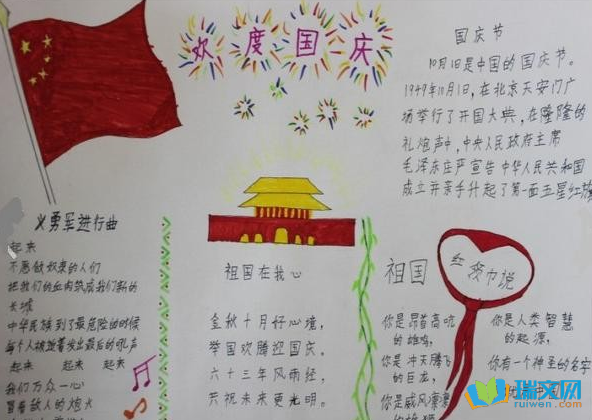 欢度国庆
国庆节
10月1日是中国的国庆节。
1949年10月1日,在北京天安门广
场举行了开国大典,在隆隆的
礼炮声中,中央人民政府主席
毛泽东庄严宣告中华人民共和国
成立并亲手升起了第一面五星红旗
义勇军进行曲
起来
不愿做奴隶的人们
把我们的血肉筑成我们新的
长城
中华民族到了最危险的时候
每个人被迫着发出最后的吼声
起来 起来 起来
我们万众一心
冒着敌人的炮火
祖国在我心
金秋十月好心境,
举国欢腾迎国庆。
六十三年风雨轻,
共祝未来更光明。
祖国
你是昂首高吭
的雄鸡,
你是冲天腾飞
的巨龙,
你是威风凛凛
红领巾说
你是人类智慧
的起源,
你有一个神圣的名字
瑞文网
ruiwen.com